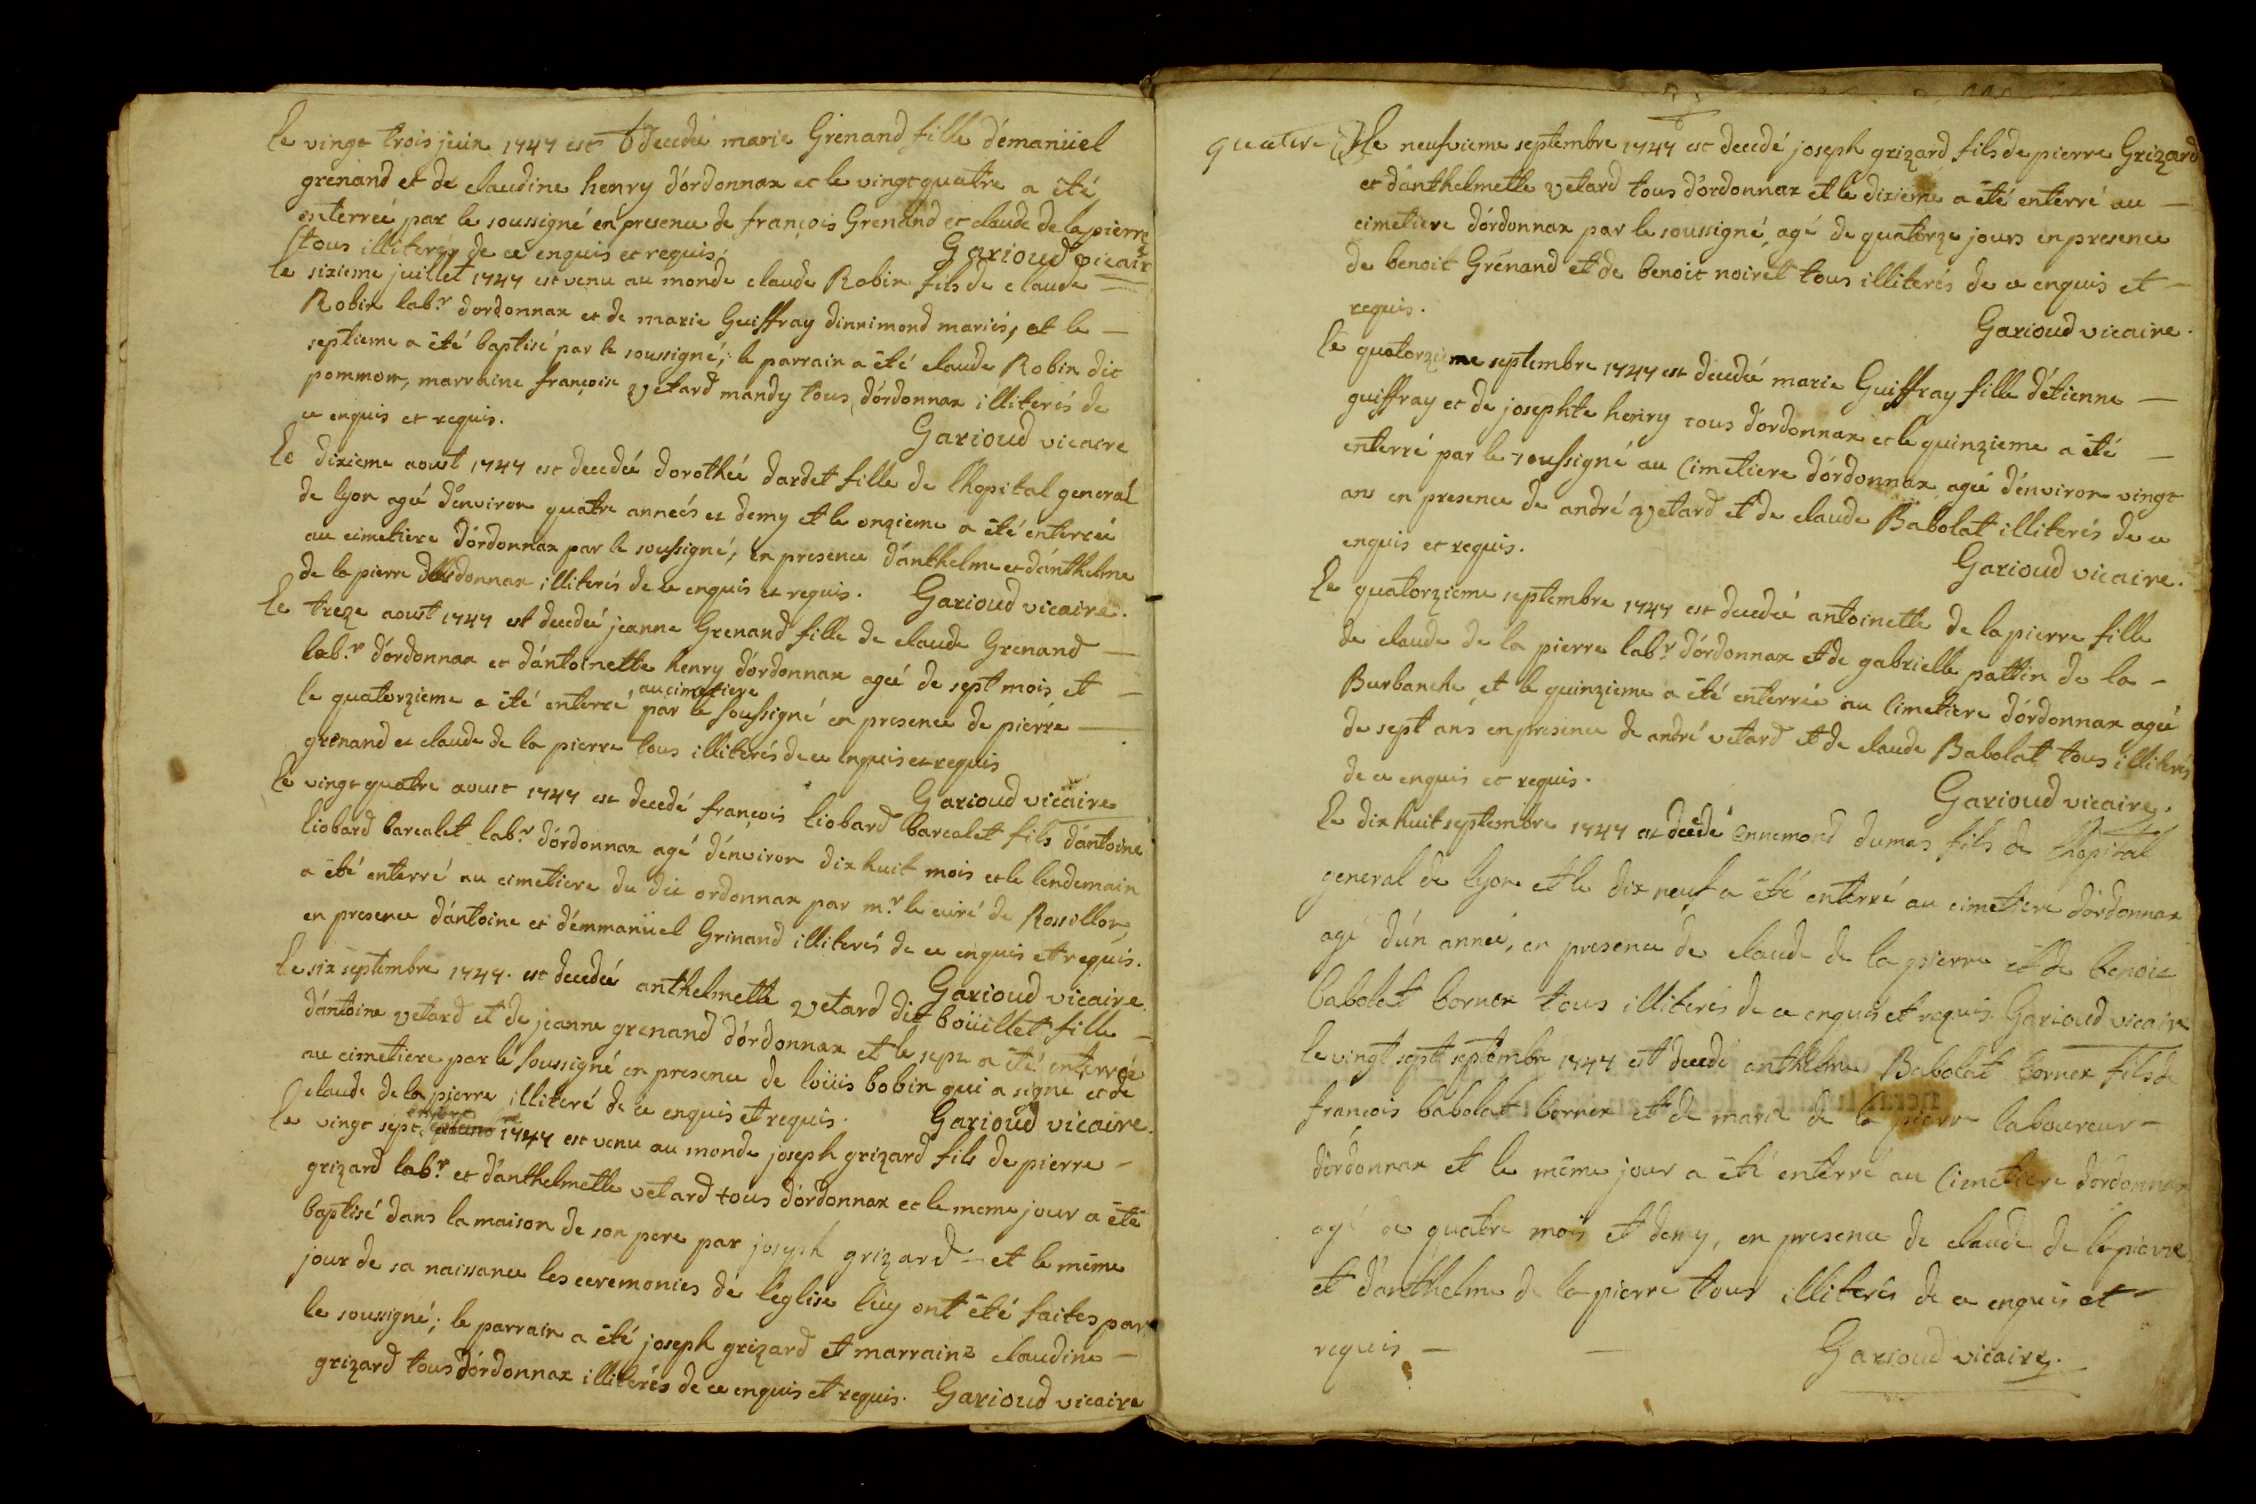 le vingt trois juin 1747 est decedée marie Grenand fille d'émanüel
grénand et de claudine henry d'órdonnax et le vingt quatre a été
enterreé par le soussigné en presence de françois Grenand et claude de la pierre
tous illiterés de ce enquis et requis. Garioud vicaire
le sixieme juillet 1747 est venu au monde claude Robin fils de claude
Robin labr. dordonnax et de marie Guiffray dinnimond mariés, et le
septieme a été baptisé par le soussigné; le parrain a été claude Robin dit
pommou, marraine françoise vetard mandy tous d'órdonnax illiterés de
ce enquis et requis. Garioud vicaire
Le dixieme aoust 1747 est decedeé dorotheé dardet fille de lhopital general
de lyon ageé d'environ quatre anneés et demy et le onzieme a été enterreé
au cimetiere d'órdonnax par le soussigné, en presence d'ánthelme et d'ánthelme
de la pierre d'órdonnax illiterés de ce enquis et requis. Garioud vicaire.
Le treze aoust 1747 est decedeé jeanne Grenand fille de claude Grenand
labr. d'órdonnax et d'ántoinette henry d'órdonnax ageé de sept mois et
au cimetiere
le quatorzieme a été enterré par le soussigné en presence de pierre
grenand et claude de la pierre tous illiterés de ce enquis et requis
Garioud vicaire
le vingt quatre aoust 1747 est decedé françois liobard barcalet fils d'ántoine
liobard barcalet labr. d'órdonnax agé d'énviron dix huit mois et le lendemain
a été enterré au cimetiere du dit ordonnax par mr. le curé de Rossillon,
en presence d'ántoine et d'émmanüel Grinand illiterés de ce enquis et requis.
Garioud vicaire
Le six septembre 1747. est decedeé anthelmette vetard dit boüillet fille
d'ántoine vetard et de jeanne grenand d'órdonnax et le sept a été enterreé
au cimetiere par le soussigné en presence de loüis bobin qui a signé et de
claude de la pierre illiteré de ce enquis et requis. Garioud vicaire.
Le vingt sept 1747 est venu au monde joseph grizard fils de pierre
grizard labr. et d'ánthelmette vetard tous d'órdonnax et le meme jour a été
baptisé dans la maison de son pere par joseph grizard et le même
jour de sa naissance les ceremonies de l'église luy ont été faites par
le soussigné; le parrain a été joseph grizard et marraine claudine
grizard tous d'órdonnax illiterés de ce enquis et requis. Garioud vicaire
quatre
Le neufvieme septembre 1747 est decedé joseph grizard fils de pierre Grizard
et d'anthelmette vetard tous d'órdonnax et le dixieme a été enterré au
cimetiere d'órdonnax par le soussigné, agé de quatorze jours en presence
de benoit Grénand et de benoit noirét tous illiterés de ce enquis et
requis.
Garioud vicaire.
Le quatorzieme septembre 1747 est decedeé marie Guiffray fille d'étienne
guiffray et de josephte henry tous d'órdonnax et le quinzieme a été
enterré par le soussigné au cimetiere d'órdonnax ageé d'énviron vingt
ans en presence de andré vetard et de claude Babolat illiterés de ce
enquis et requis.
Garioud vicaire.
Le quatorzieme septembre 1747 est decedeé antoinette de la pierre fille
de claude de la pierre labr. d'órdonnax et de gabrielle pattin de la
Burbanche, et le quinzieme a été enterrée au cimetiere d'órdonnax ageé
de sept ans en presence de andré vetard et de claude Babolat tous illiterés
de ce enquis et requis.
Garioud vicaire.
Le dix huit septembre 1747 est decedé Ennemond dumas fils de lhopital
general de lyon et le dix neuf a été enterré au cimetiere d'órdonnax
agé d'ún anneé, en presence de claude de la pierre et de benoit
babolat bornex tous illiterés de ce enquis et requis. Garioud vicaire
le vingt sept septembre 1747 est decedé anthelme Babolat bornex fils de
françois babolat bornex et de marie de la pierre laboureur
d'órdonnax et le même jour a été enterré au cimetiere d'órdonnax
agé de quatre mois et demy, en presence de claude de la pierre
et d'ánthelme de la pierre tous illiterés de ce enquis et
requis
Garioud vicaire.